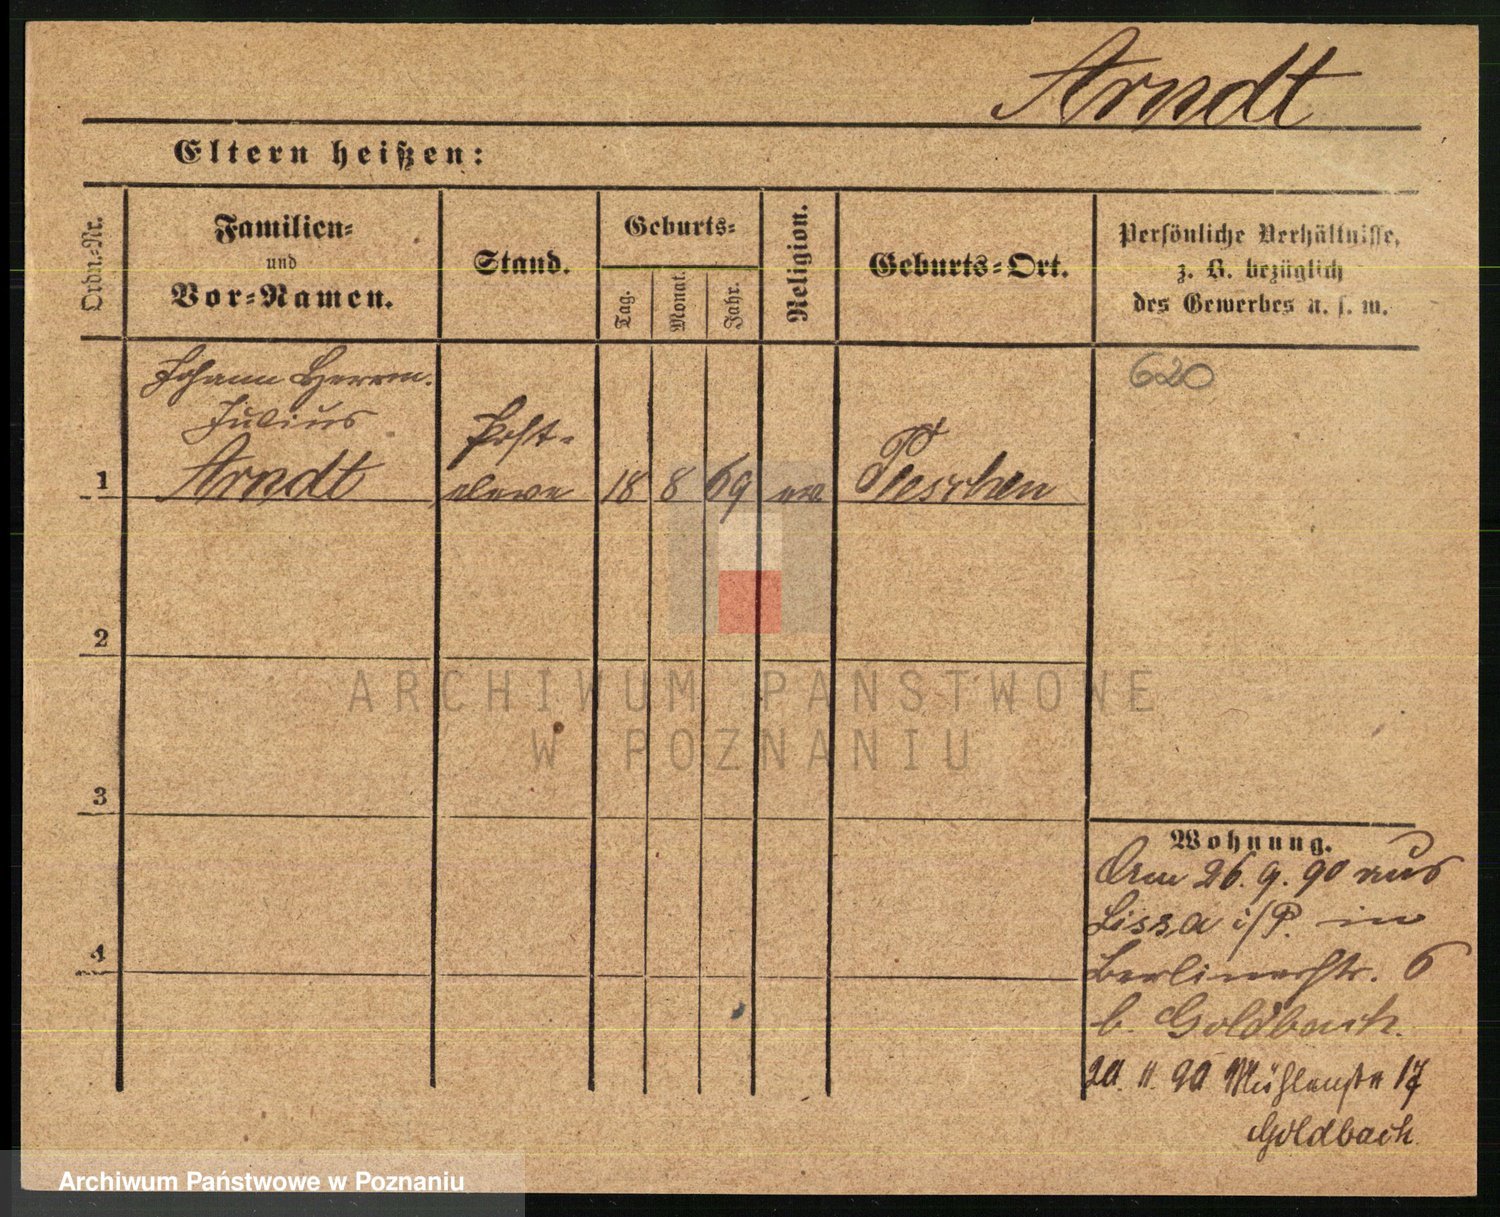 Arndt
Eltern heißen:
Ordn.-Nr.
Familien-
und
Vor-Namen.
Stand.
Geburts-
Tag.
Monat.
Jahr.
Religion.
Geburts-Ort.
Persönliche Verhältnisse,
z. B. bezüglich
des Gewerbes u. s. w.
620
Johann Herrm.
Julius
Arndt
Post-
eleve
1
18
8
69
ev
2
3
4
Wohnung.
Am 26. 9. 90 aus
Lissa i/P. in
Berlinerstr. 6
b. Goldbach.
20. 11. 90 Mühlenstr 17
Goldbach
ARCHIWUM PAŃSTWOWE
W POZNANIU
Archiwum Państwowe w Poznaniu